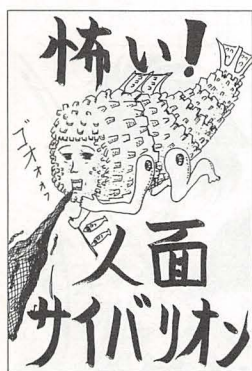 怖い!
ゴオオオゥ
人面
サイバリオン